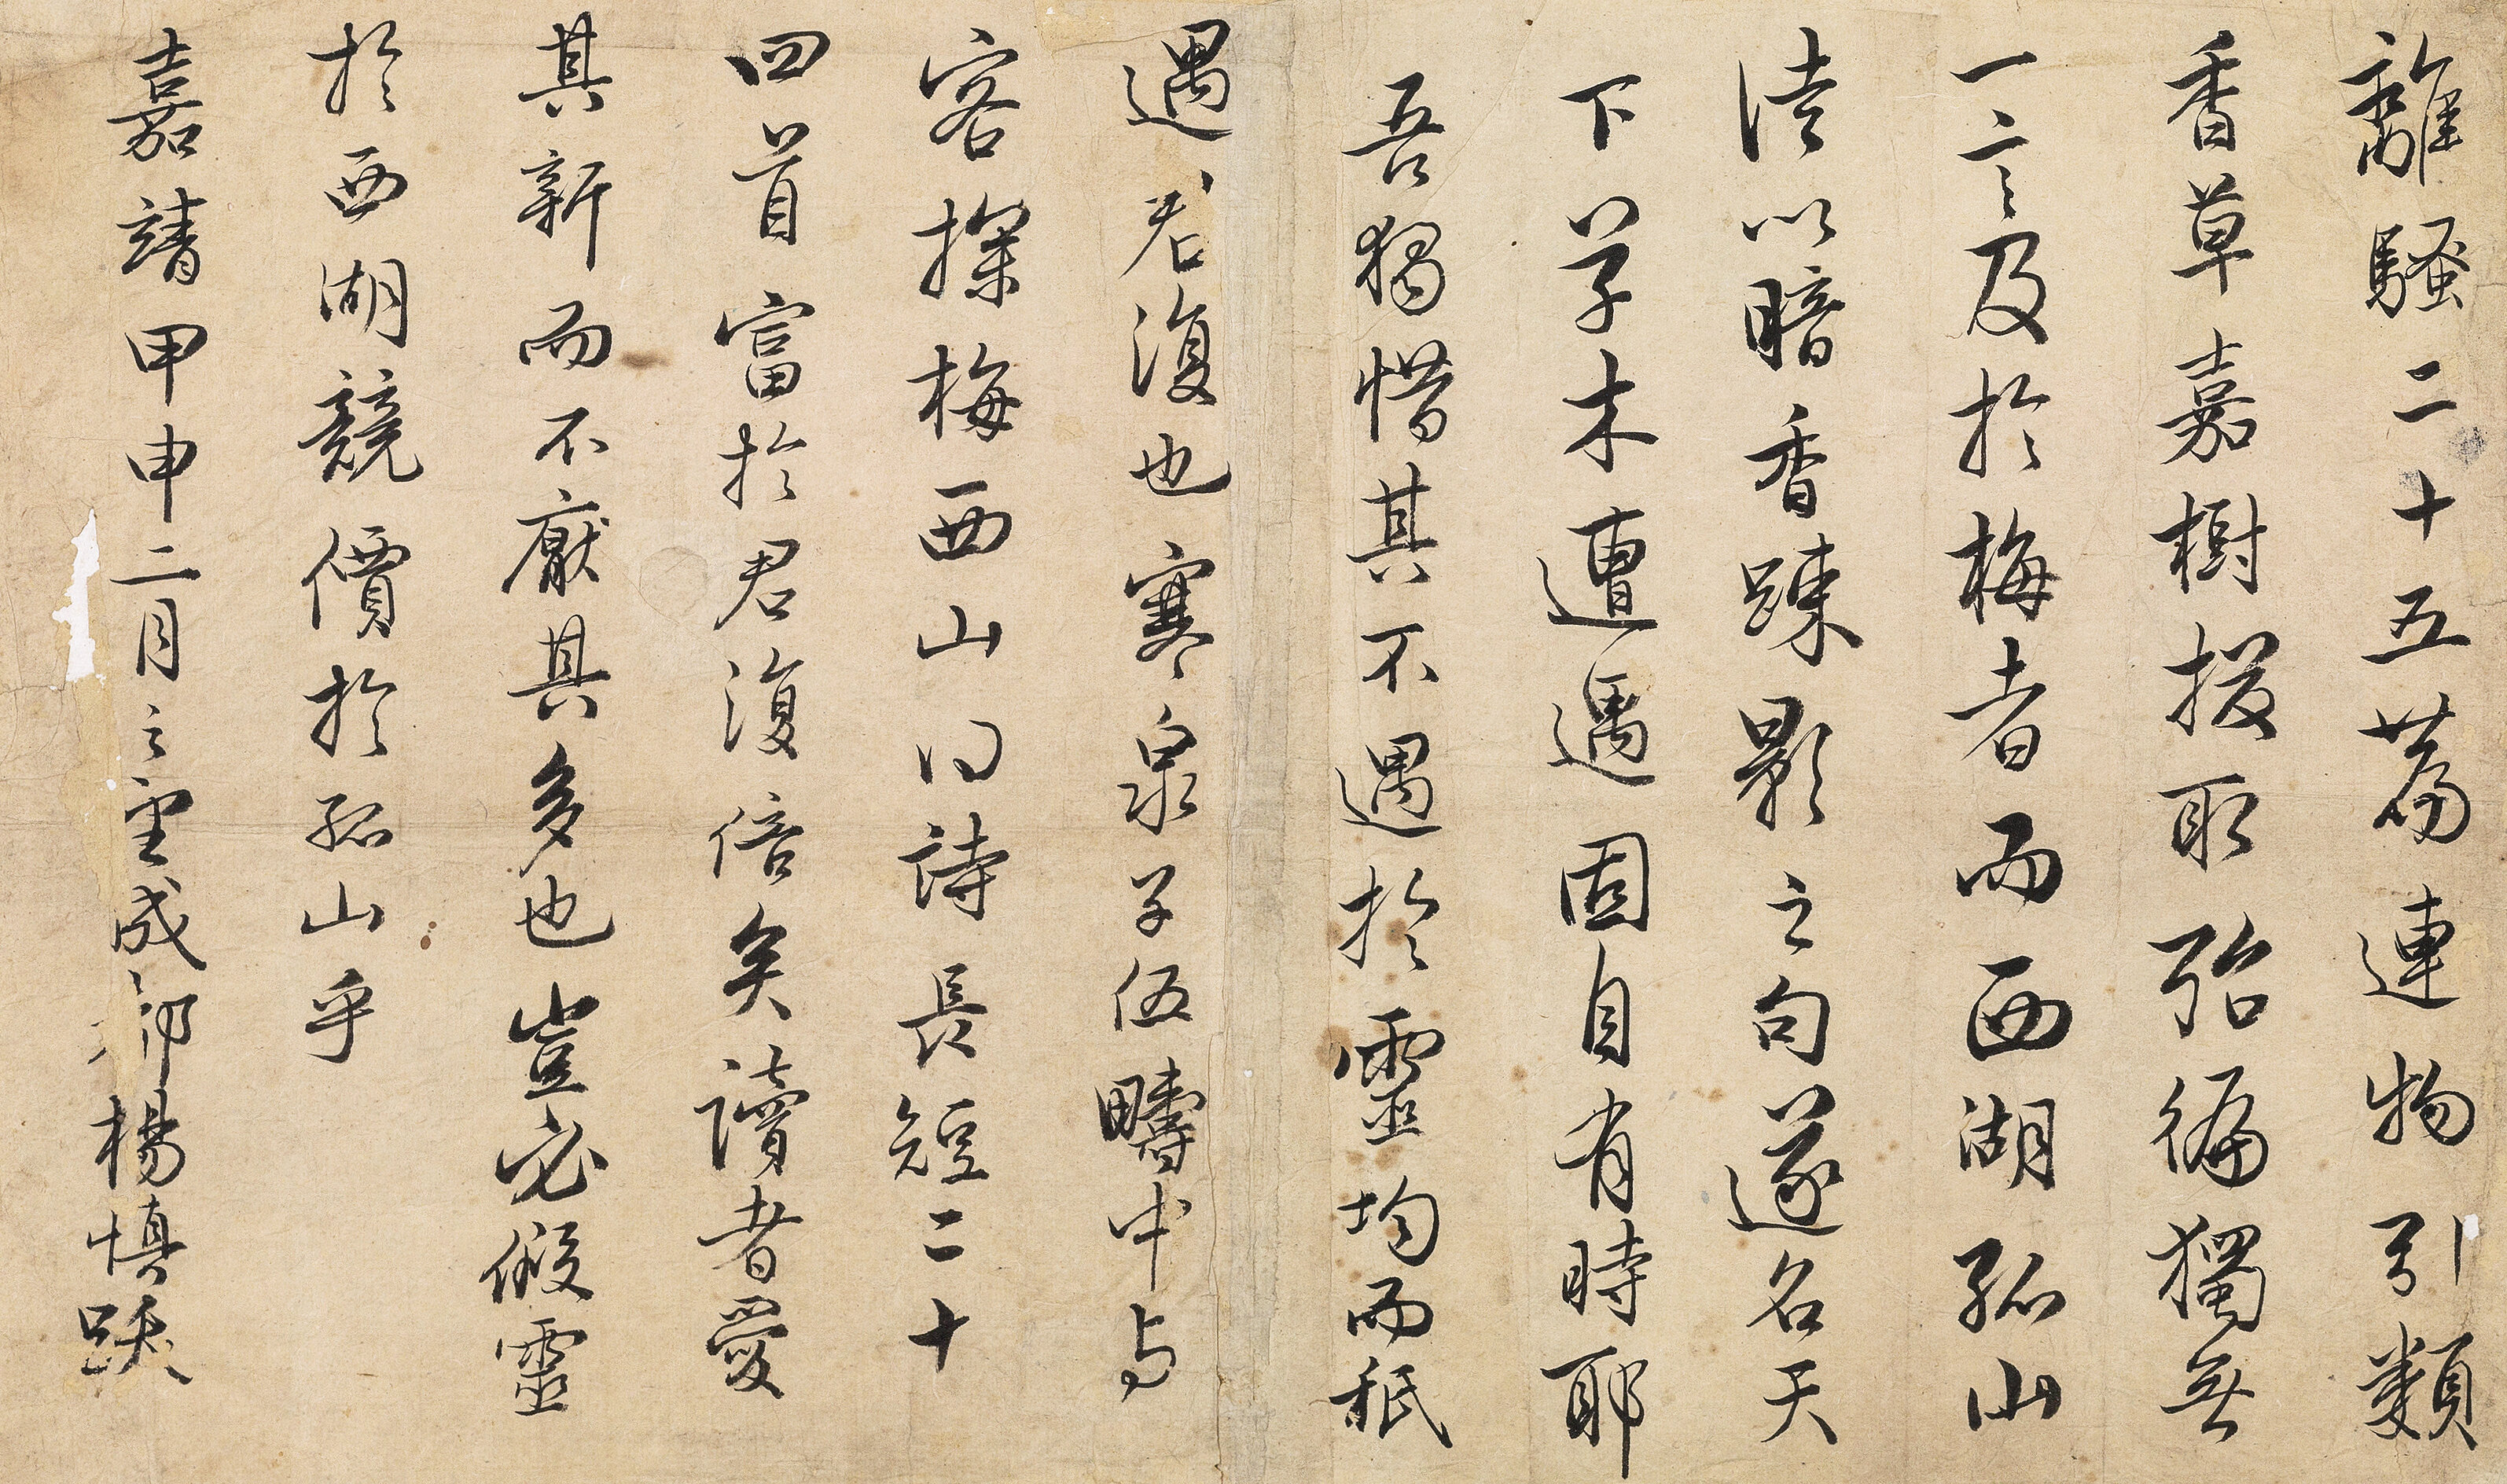 離騷二十五篇連物引類
香草嘉樹掇取殆徧獨無
一言及於梅者而西湖孤山
法以暗香踈影之句遂名天
下草木遭遇固自有時耶
吾獨惜其不遇於靈均而秖
遇君復也寒泉子伍疇中与
客探梅西山得詩長短二十
四首富於君復倍矣讀者愛
其新而不厭其多也豈必假靈
於西湖競價於孤山乎
嘉靖甲申二月之望成都楊慎跋